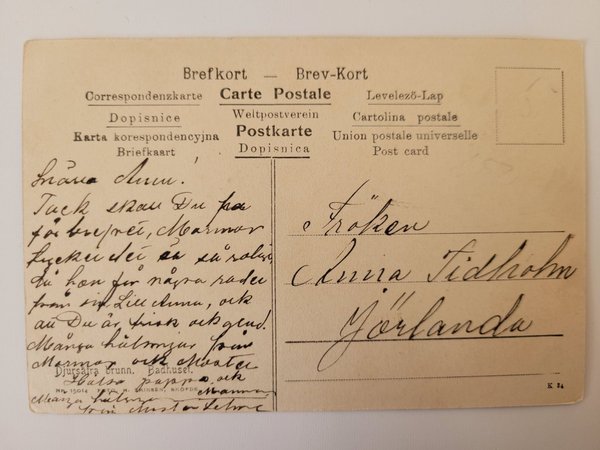 Brefkort — Brev-Kort
Correspondenzkarte Carte Postale Levelező-Lap
Dopisnice Weltpostverein Cartolina postale
Karta korespondencyjna Postkarte Union postale universelle
Briefkaart Dopisnica Post card
Anna!
Tack skall Du
för brefvet, Mormor
tycker det är så roligt
då hon får några rader
från sin Lill Anna, och
att Du är frisk och glad.
Många hälsningar från
Mormor och Moster
Djursätra brunn. Badhuset.
Hälsa pappa och
Mamma
från Moster
Fröken
Anna Tidholm
Jörlanda
K 24